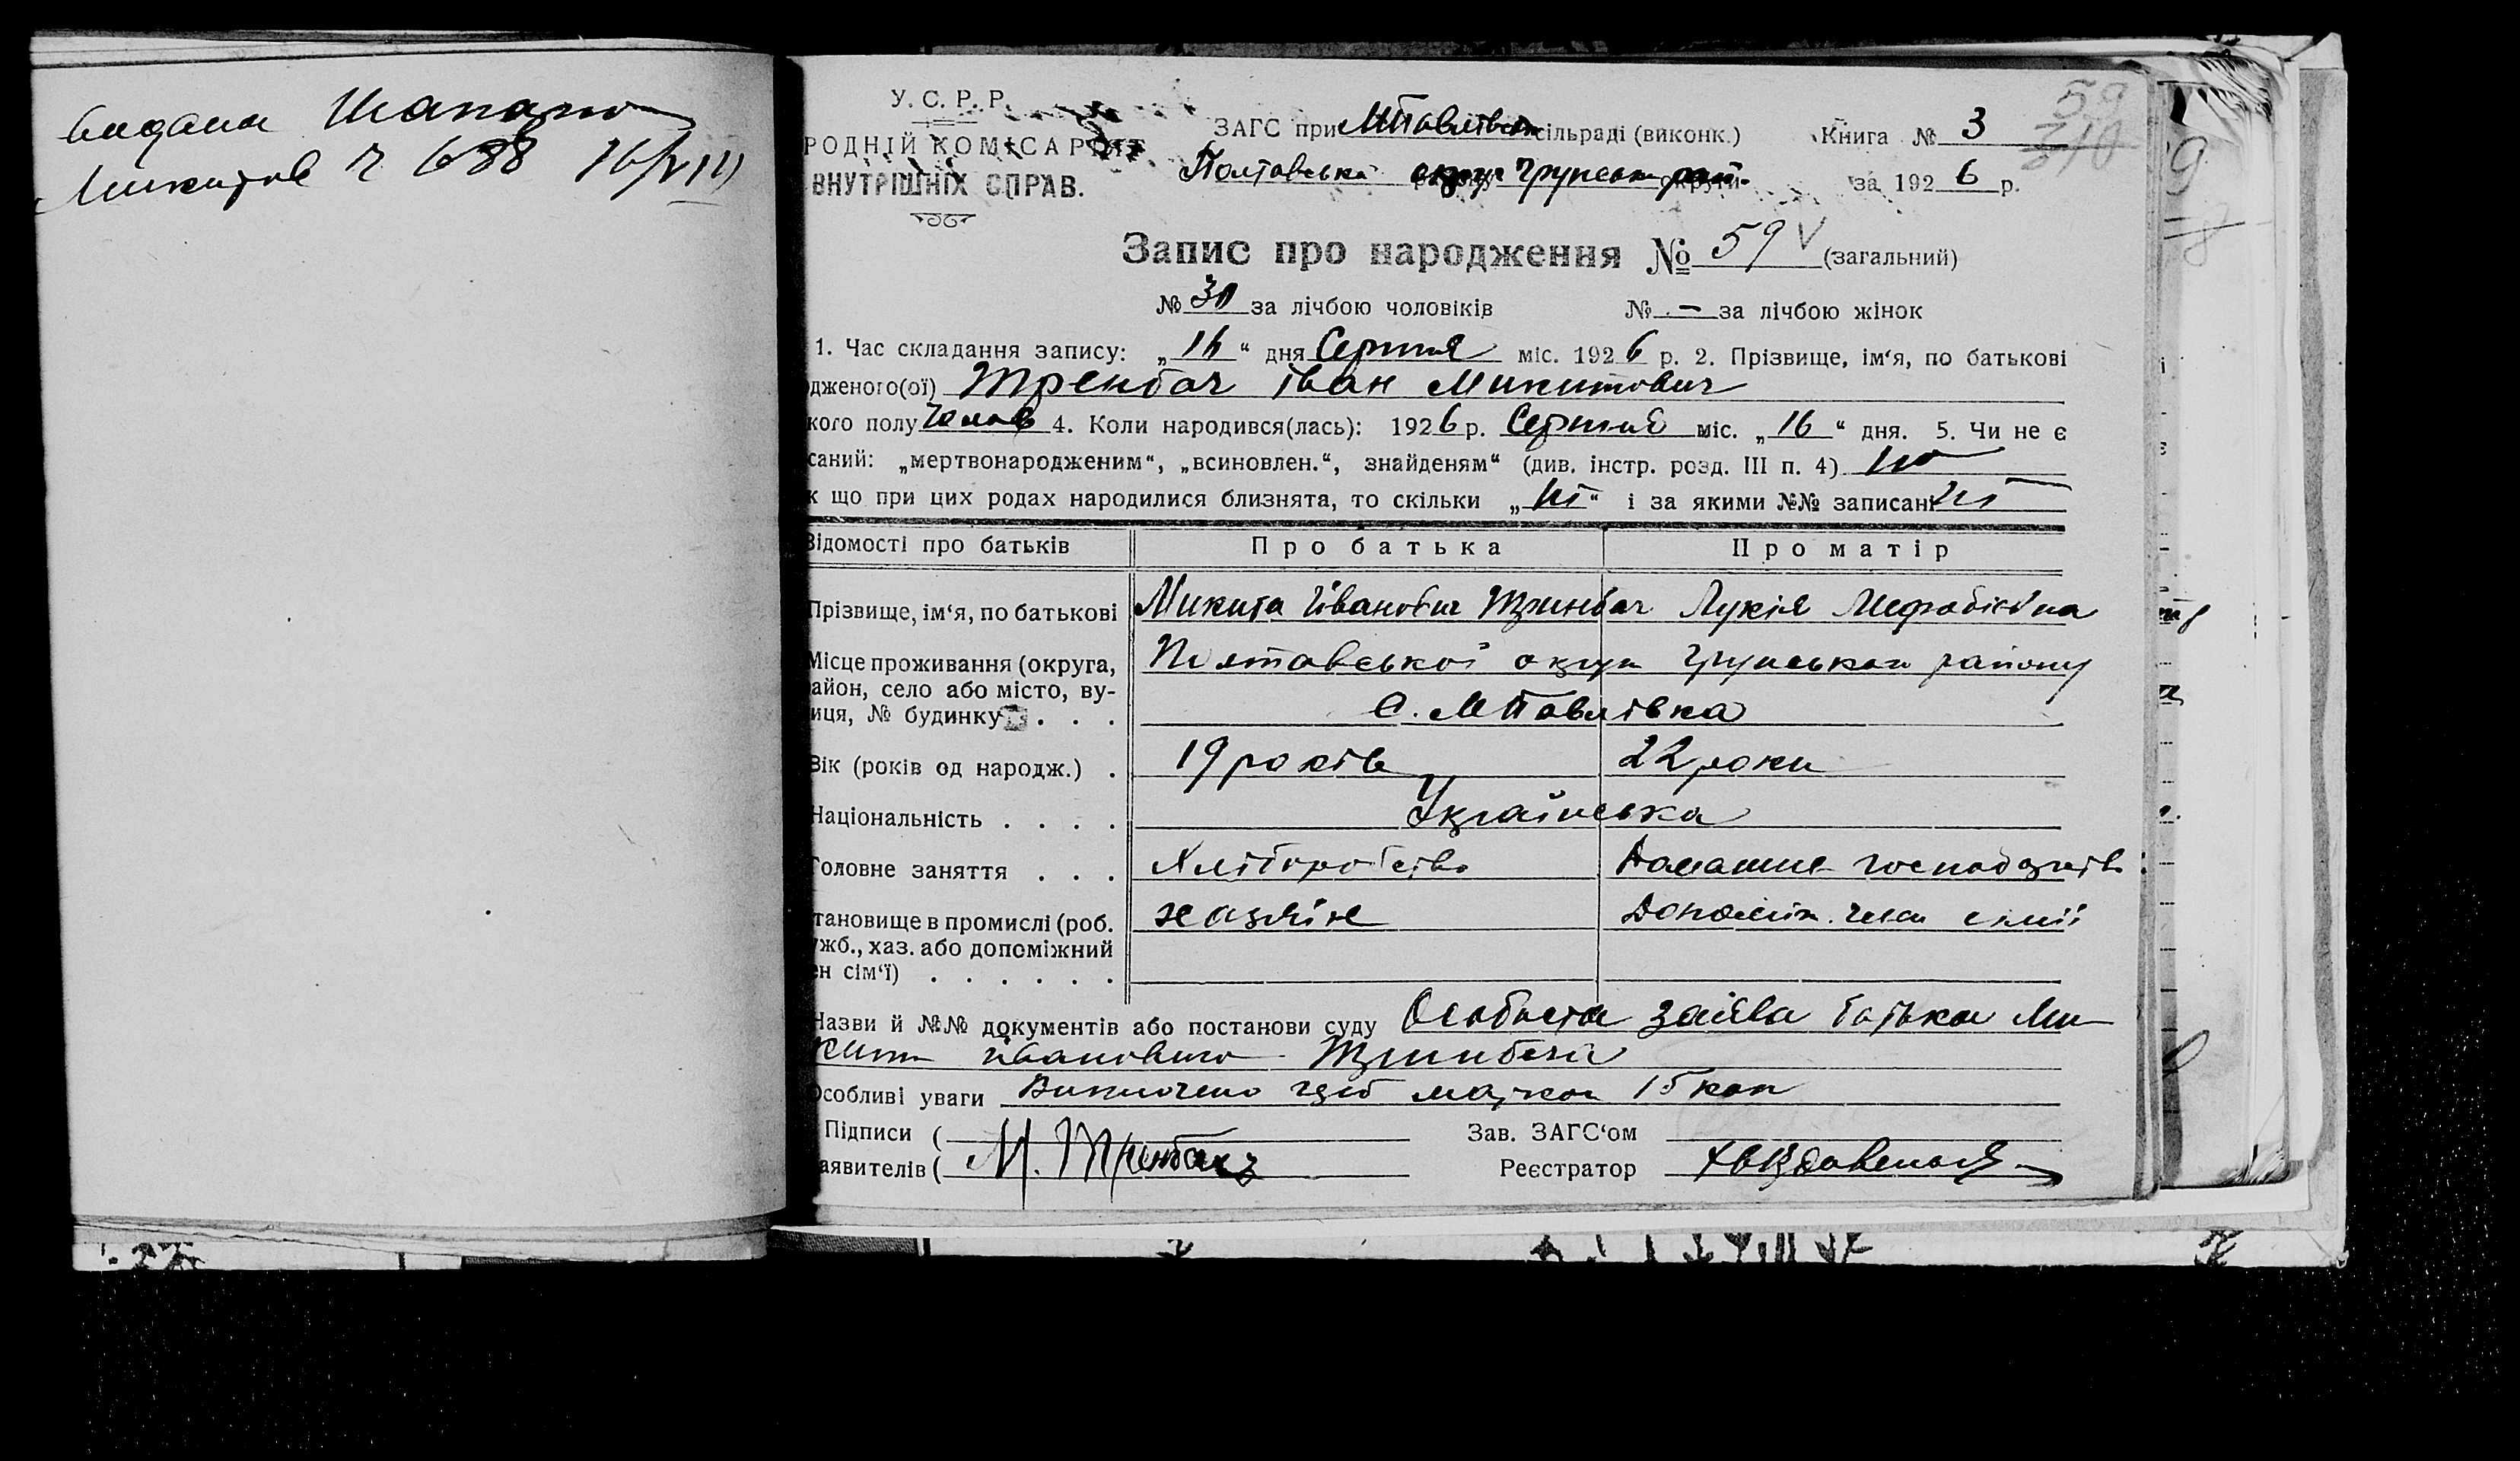 видана
Микитов ч 688 16/VIII
У. С. Р. Р.
РОДНІЙ КОМІСАРІЯТ
ВНУТРІШНІХ СПРАВ.
ЗАГС при МПавлівськ сільраді (виконк.)
Полтавська округ Грунськ рай.
Книга № 3
за 1926 р.
59
310
Запис про народження № 59 V (загальний)
№ 30 за лічбою чоловіків № - за лічбою жінок
1. Час складання запису: „16“ дня Серпня міс. 1926 р. 2. Прізвище, ім‘я, по батькові
дженого(ої) Тренбач Іван Микитович
кого полу Чолов 4. Коли народився(лась): 1926 р. Серпня міс. „16“ дня. 5. Чи не є
саний: „мертвонародженим“, „всиновлен.“, знайденям“ (див. інстр. розд. III п. 4) ні
к що при цих родах народилися близнята, то скільки „ні“ і за якими №№ записані ні
Відомості про батьків Про батька Про матір
Прізвище, ім‘я, по батькові Микита Іванович Тринбач Лукія Мефодієвна
Місце проживання (округа, Полтавської округи Грунського району
айон, село або місто, ву-
иця, № будинку . . . с. МПавлівка
Вік (років од народж.) . 19 років 22 роки
Національність . . . . Українська
Головне заняття . . . Хліборобство Домашнє господарств
тановище в промислі (роб. хазяїн Допоміж. член сімії
ужб., хаз. або допоміжний
ен сім‘ї) . . . . . .
Назви й №№ документів або постанови суду Особиста заява батька Ми-
кити Івановича Тринбача
Особливі уваги герб марки 15 коп
Підписи ( Зав. ЗАГС‘ом
аявителів ( М. Тренбач Реєстратор